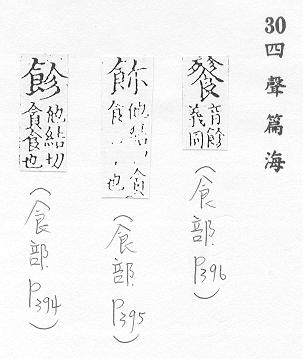 30 四聲篇海
音飻
義同
(食部 P396)
他結丶貪
食丶丶也
(食部 P395)
飻
他結切
貪食也
(食部 P394)